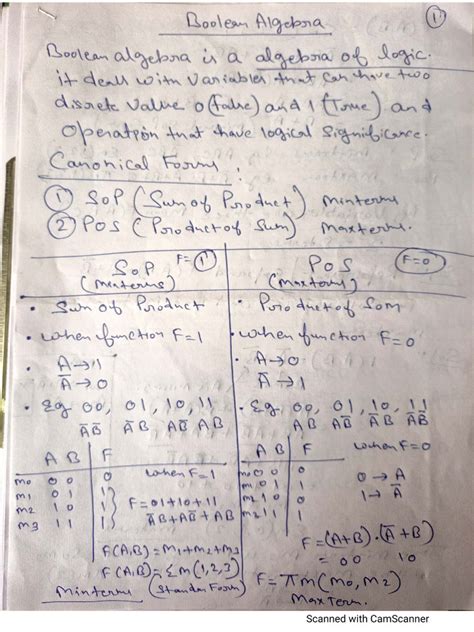 Boolean Algebra
1
Boolean algebra is a algebra of logic.
it deals with variables that can have two
discrete value 0 (false) and 1 (True) and
operation that have logical significance.
Canonical Forms :
① SOP (Sum of Product) minterms
② POS (Product of Sum) maxterms.
SOP F=1 (minterms)
POS F=0 (maxterms)
• Sum of Product
• Product of Som
• when function F=1
• when function F=0
• A→1
A̅→0
• A→0
A̅→1
• Eg 00, 01, 10, 11
A̅B̅ A̅B AB̅ AB
• Eg. 00, 01, 10, 11
A B F
when F=1
m0 0 0 0
m1 0 1 1
m2 1 0 1
m3 1 1 1
F=01+10+11
A̅B+AB̅+AB
F(A,B)=m1+m2+m3
F(A,B)=Σm(1,2,3)
Minterms (Standar Form)
A B F
when F=0
m0 0 0 0
m1 0 1 1
m2 1 0 0
m2 1 1 1
0→A
1→A̅
F=(A+B).(A̅+B)
= 00 10
F=πm(m0,m2)
Max Term.
Scanned with CamScanner